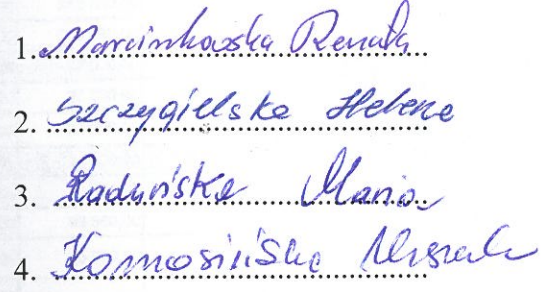 1. Marcinkowska Renata
2. Szczygielska Helena
3. Raduńska Maria
4. Komosińska Urszula